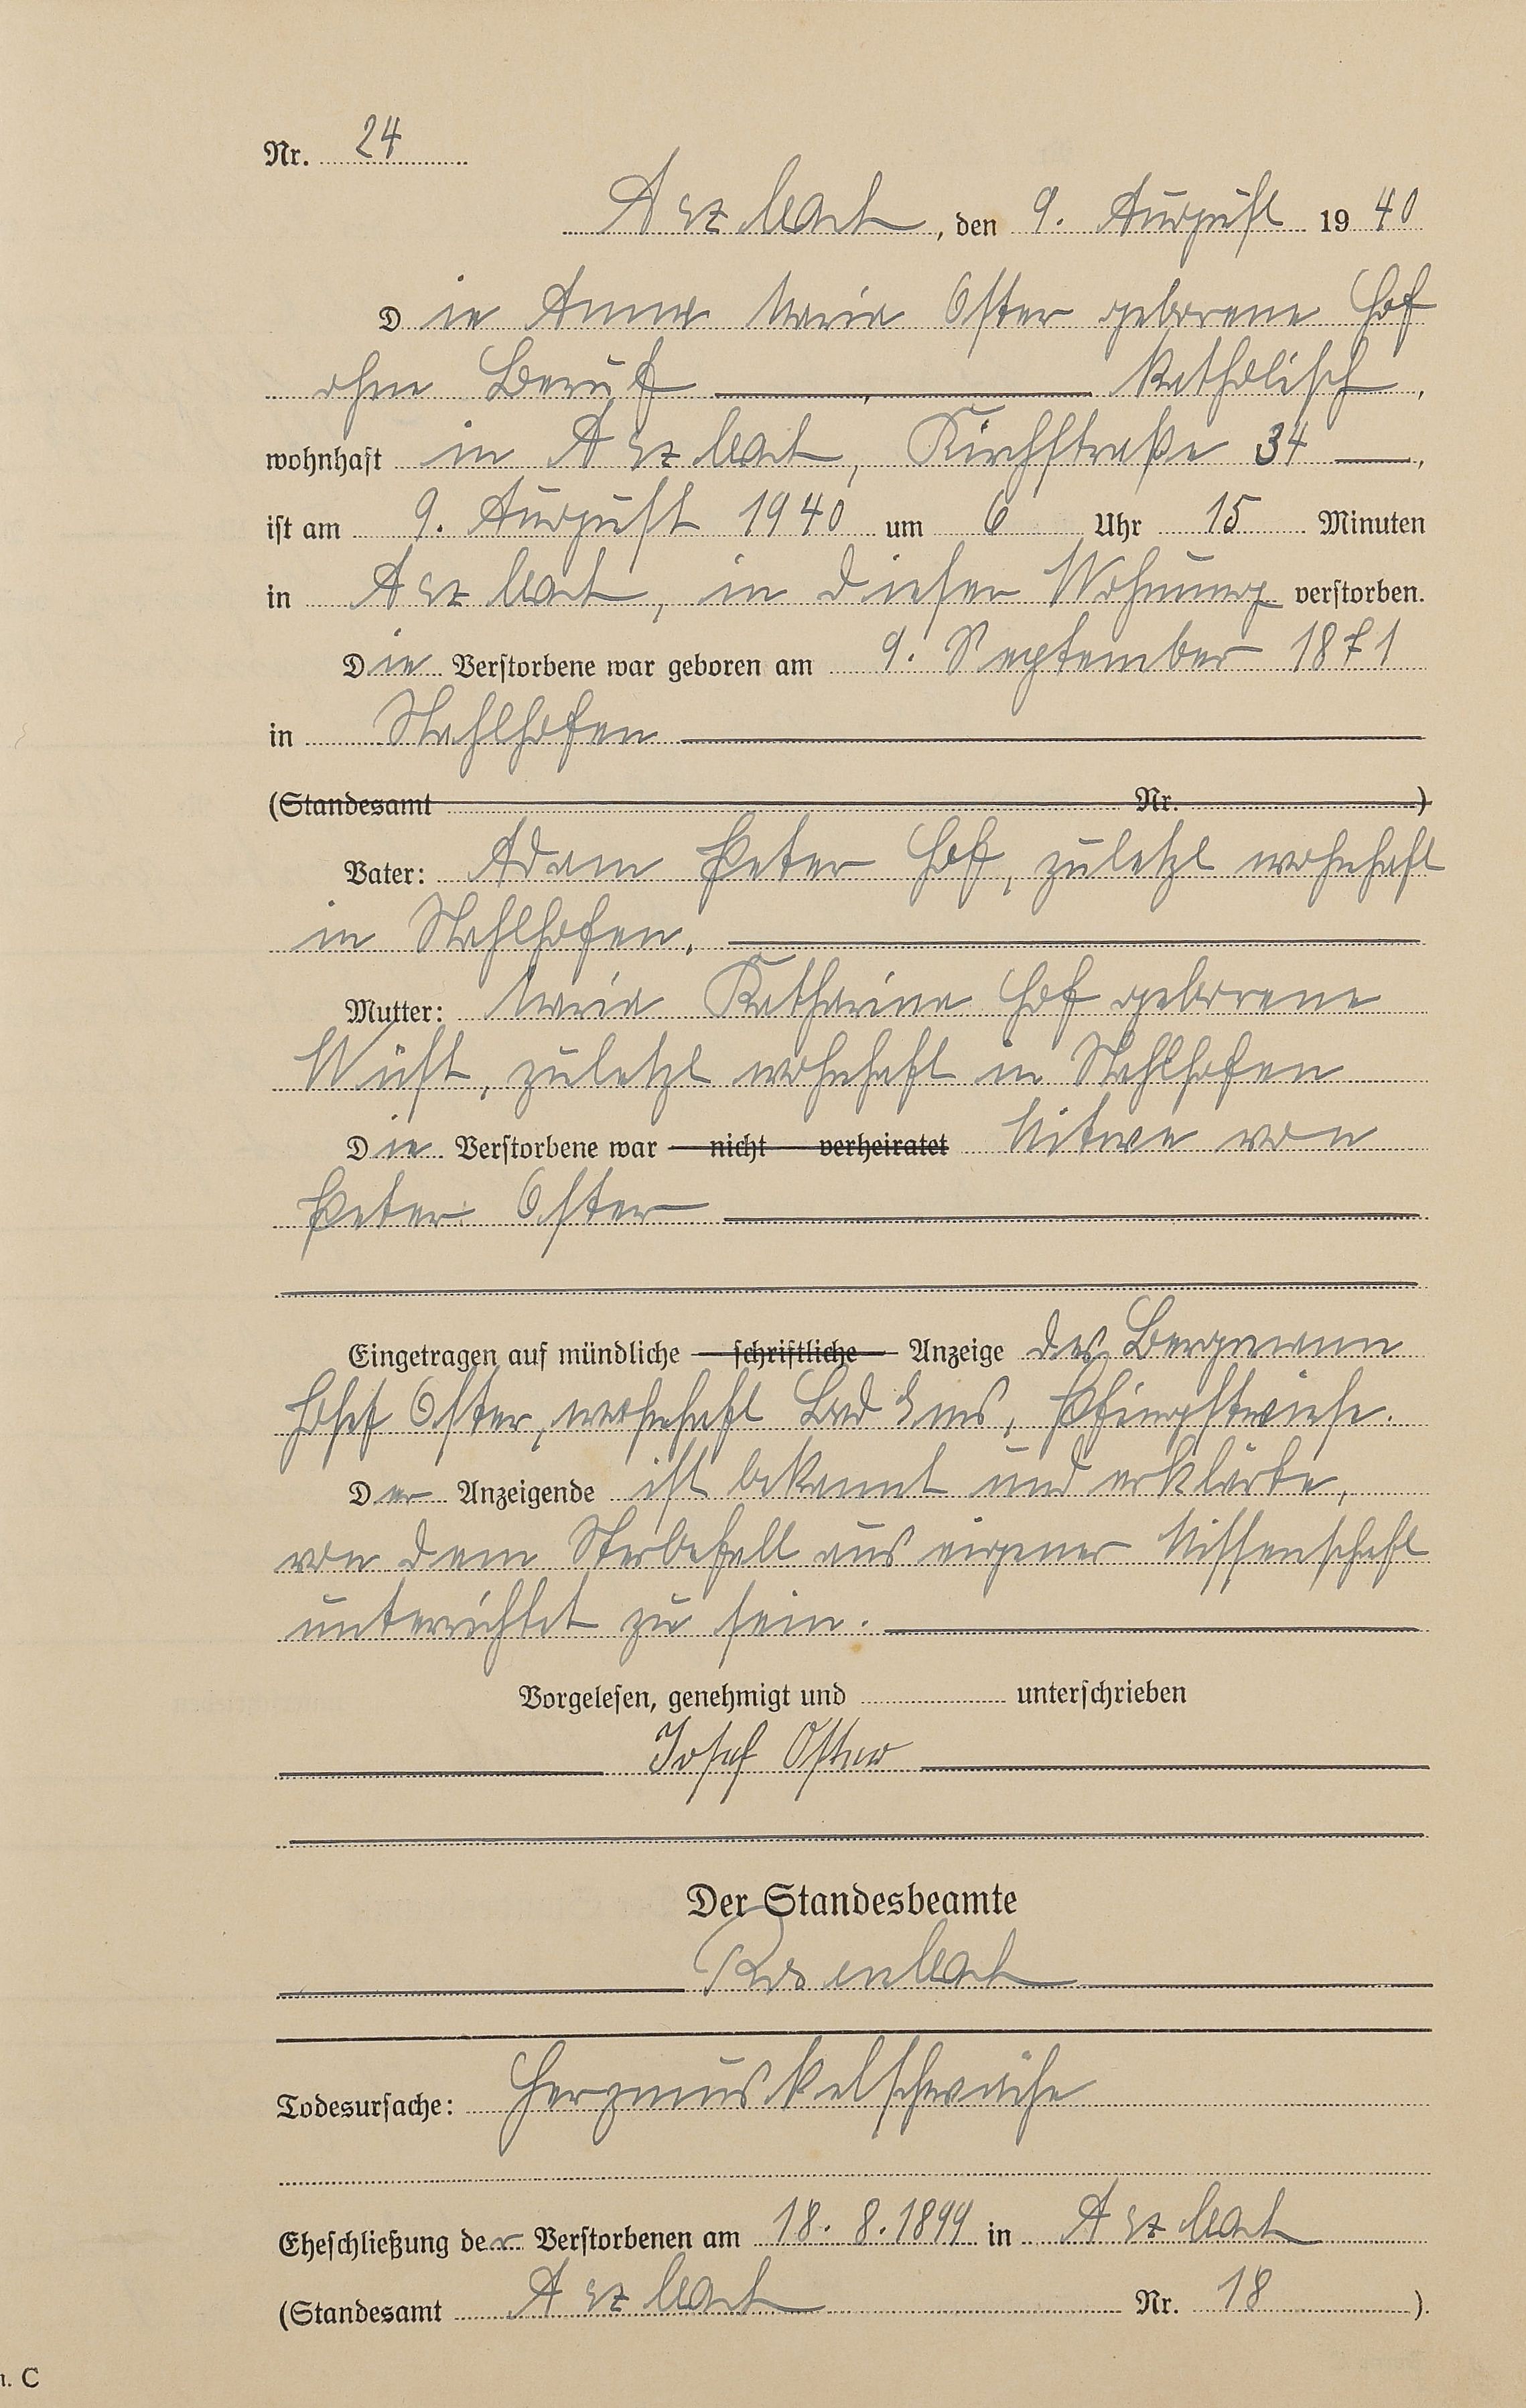 Nr. 24
Arzbach, den 9. August 1940
Die Anna Maria Oster geborene Hof
ohne Beruf, katholisch,
wohnhaft in Arzbach, Kirchstraße 34,
ist am 9. August 1940 um 6 Uhr 15 Minuten
in Arzbach, in dieser Wohnung verstorben.
Die Verstorbene war geboren am 9. September 1871
in Stahlhofen
(Standesamt Nr. )
Vater: Adam Peter Hof, zuletzt wohnhaft
in Stahlhofen.
Mutter: Maria Katharina Hof geborene
Wüst, zuletzt wohnhaft in Stahlhofen
Die Verstorbene war nicht verheiratet Witwe von
Peter Oster
Eingetragen auf mündliche schriftliche Anzeige des Bergmann
Josef Oster, wohnhaft Bad Ems, Pfingstwiese.
Der Anzeigende ist bekannt und erklärte,
von dem Sterbefall aus eigener Wissenschaft
unterrichtet zu sein.
Vorgelesen, genehmigt und unterschrieben
Josef Oster
Der Standesbeamte
Rosenbach
Todesursache: Herzmuskelschwäche
Eheschließung der Verstorbenen am 18. 8. 1899 in Arzbach
(Standesamt Arzbach Nr. 18 ).
. C